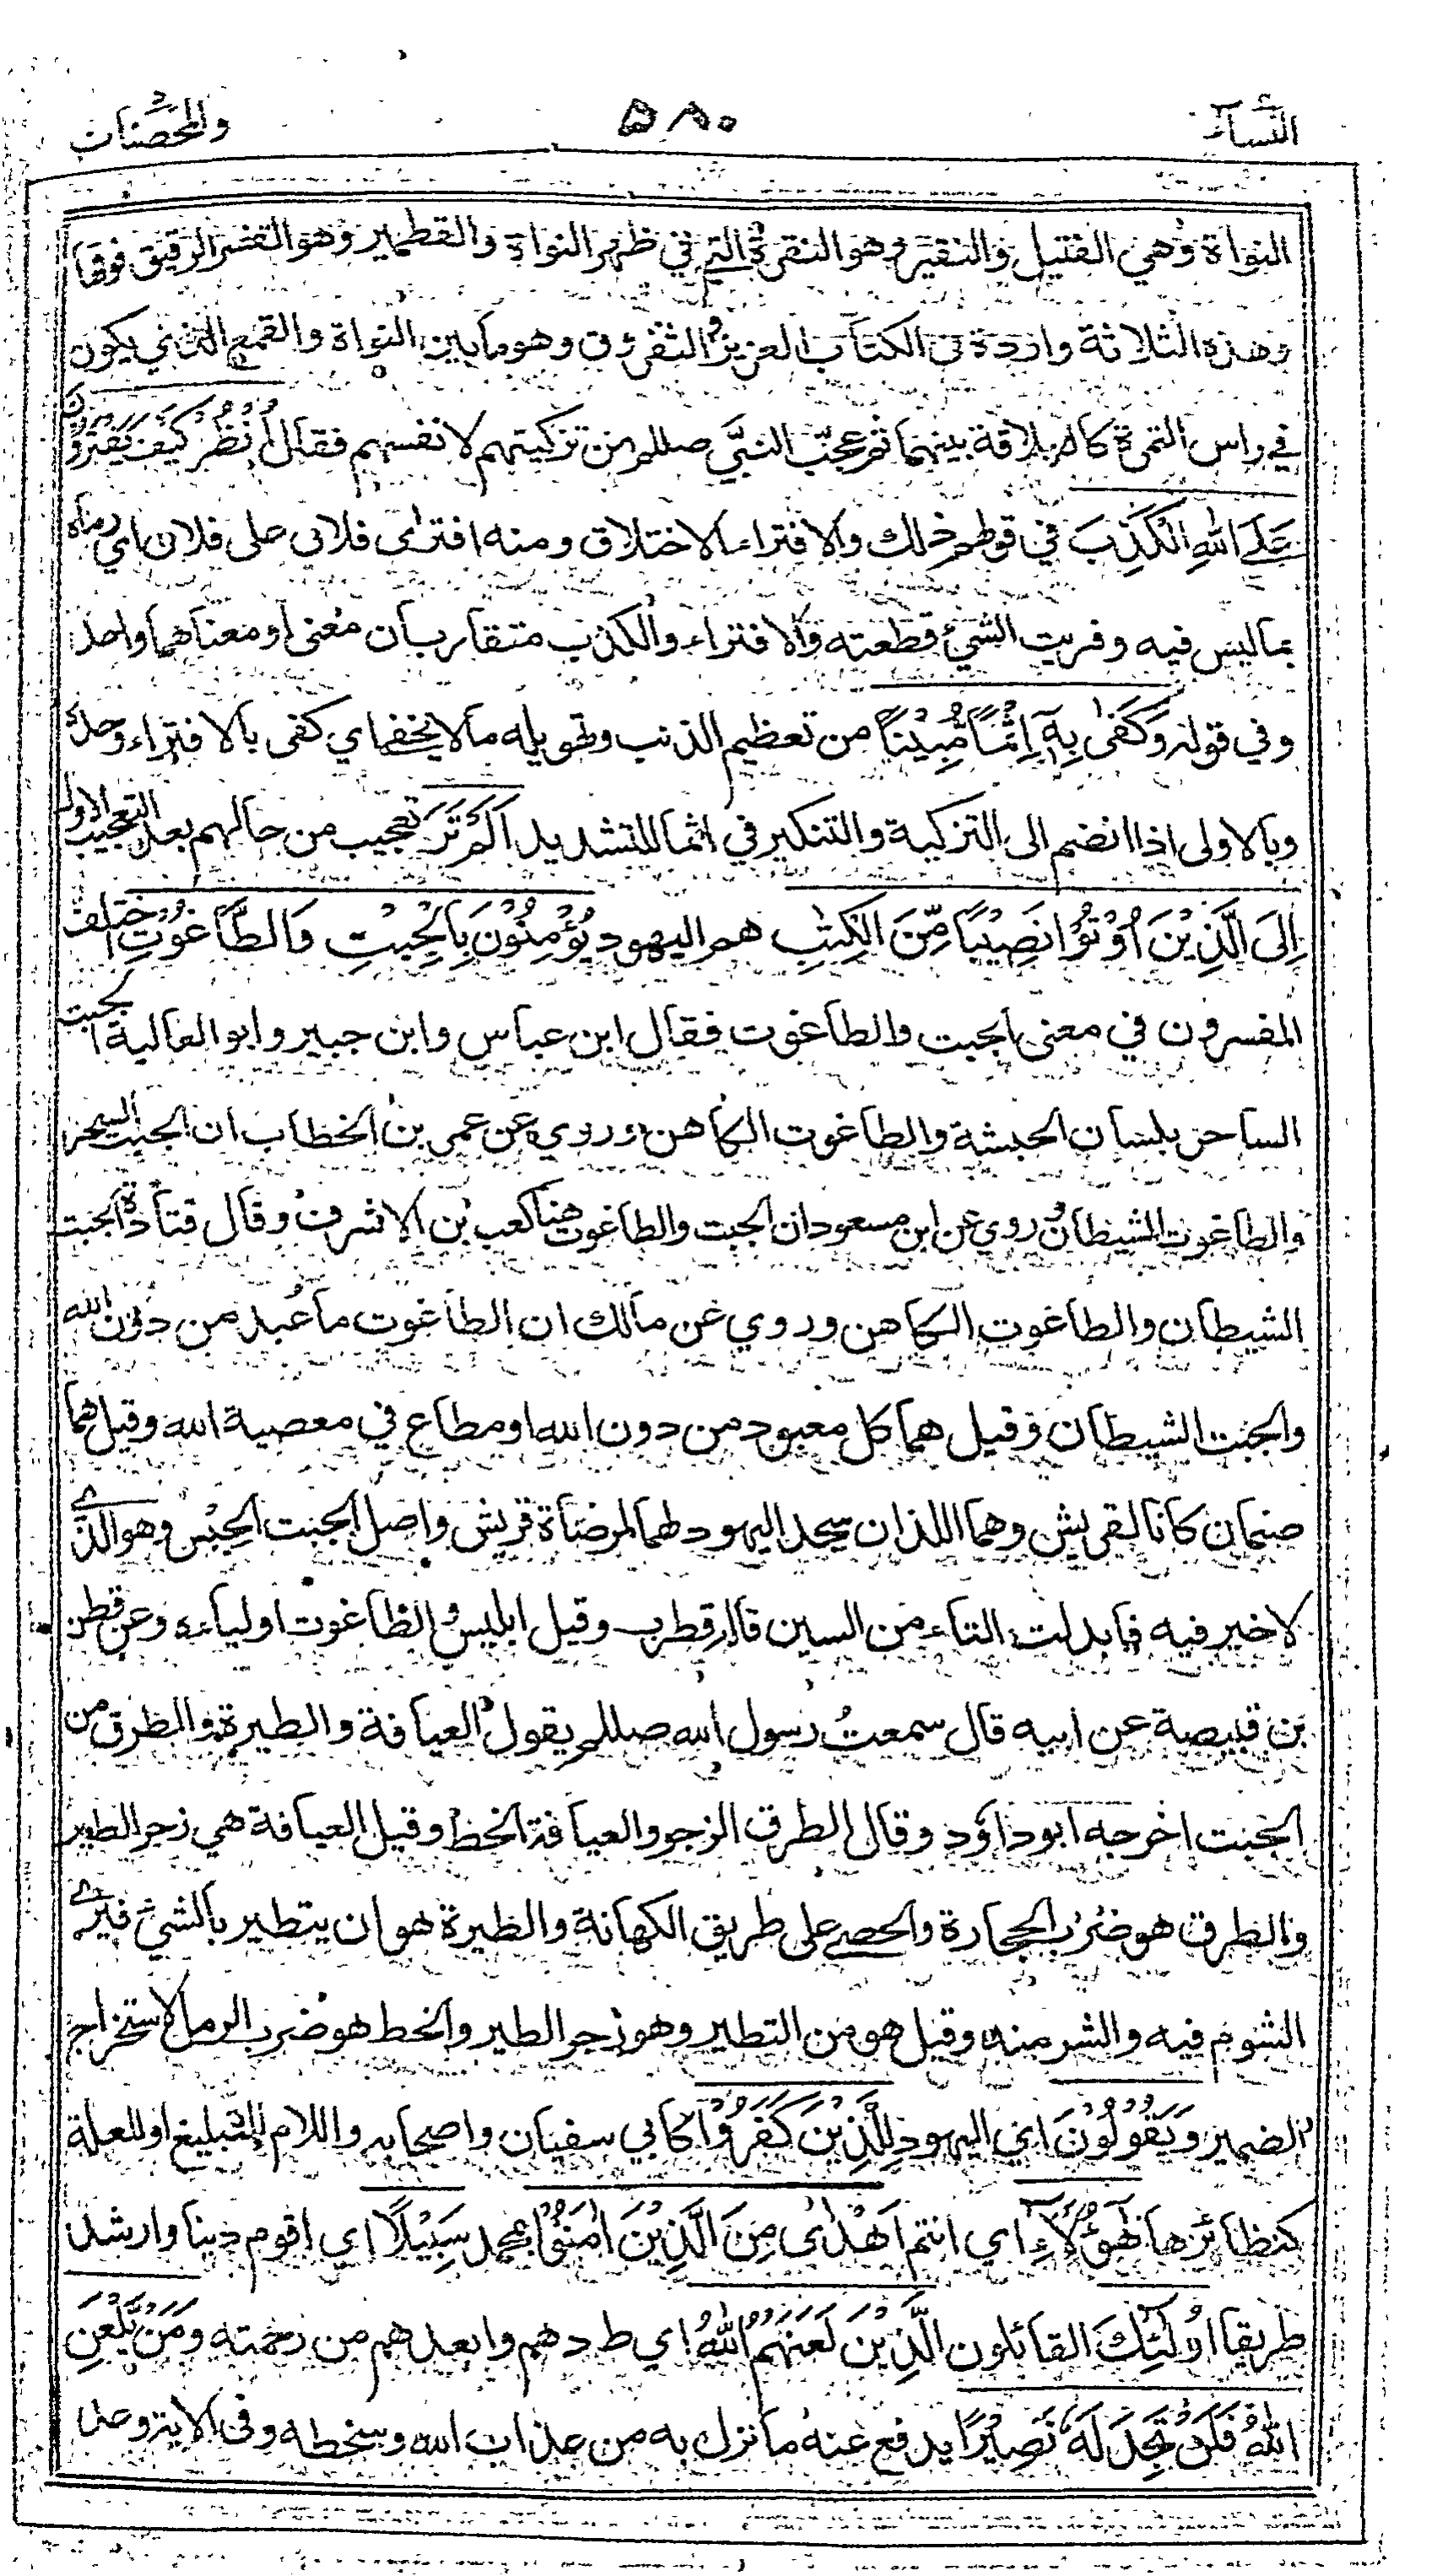 النسآء ٥٨٠ والمحصنات
النواة وهي الفتيل والنقير وهو النقرة التي في ظهر النواة والقطمير وهو القشر الرقيق فوقها
وهذه الثلاثة واردة في الكتاب العزيز والثفروق وهو ما بين النواة والقمع الذي يكون
في راس التمرة كالعلاقة بينهما ثم عجّب النبيَّ صللم من تزكيتهم لانفسهم فقال اُنْظُرْ كَيْفَ يَفْتَرُوْنَ
عَلَى اللهِ الْكَذِبَ في قولهم ذلك والافتراء الاختلاق ومنه افترى فلان على فلان اي رماه
بما ليس فيه وفريت الشيء قطعته والافتراء والكذب متقاربان معنى او معناهما واحد
وفي قوله وَكَفٰى بِهٖٓ اِثْمًا مُّبِيْنًا من تعظيم الذنب وتهويله ما لا يخفى اي كفى بالافتراء وحده
وبالاولى اذا انضم الى التزكية والتنكير في اثما للتشديد اَلَمْ تَرَ تعجيب من حالهم بعد التعجيب الاول
اِلَى الَّذِيْنَ اُوْتُوْا نَصِيْبًا مِّنَ الْكِتٰبِ هم اليهود يُؤْمِنُوْنَ بِالْجِبْتِ وَالطَّاغُوْتِ اختلف
المفسرون في معنى الجبت والطاغوت فقال ابن عباس وابن جبير وابو العالية الجبت
الساحر بلسان الحبشة والطاغوت الكاهن وروي عن عمر بن الخطاب ان الجبت السحر
والطاغوت الشيطان وروي عن ابن مسعود ان الجبت والطاغوت هنا كعب بن الاشرف وقال قتادة الجبت
الشيطان والطاغوت الكاهن وروي عن مالك ان الطاغوت ما عُبد من دون الله
والجبت الشيطان وقيل هما كل معبود من دون الله او مطاع في معصية الله وقيل هما
صنمان كانا لقريش وهما اللذان سجد اليهود لهما لمرضاة قريش واصل الجبت الجِبْس وهو الذي
لا خير فيه فابدلت التاء من السين قاله قطرب وقيل ابليس والطاغوت اولياءه وعن قطن
بن قبيصة عن ابيه قال سمعتُ رسول الله صللم يقول العيافة والطيرة والطرق من
الجبت اخرجه ابوداؤد وقال الطرق الزجر والعيافة الخط وقيل العيافة هي زجر الطير
والطرق هو ضرب الحجارة والحصى على طريق الكهانة والطيرة هو ان يتطير بالشيء فيرى
الشوم فيه والشر منه وقيل هو من التطير وهو زجر الطير والخط هو ضرب الرمل لاستخراج
الضمير وَيَقُوْلُوْنَ اي اليهود لِلَّذِيْنَ كَفَرُوْا كابي سفيان واصحابه واللام للتبليغ او للعلة
كنظائرها هٰٓؤُلَآءِ اي انتم اَهْدٰى مِنَ الَّذِيْنَ اٰمَنُوْا بمحمد سَبِيْلًا اي اقوم دينا وارشد
طريقا اُولٰٓئِكَ القائلون الَّذِيْنَ لَعَنَهُمُ اللهُ اي طردهم وابعدهم من رحمته وَمَنْ يَّلْعَنِ
اللهُ فَلَنْ تَجِدَ لَهٗ نَصِيْرًا يدفع عنه ما نزل به من عذاب الله وسخطه وفي الاية وعد